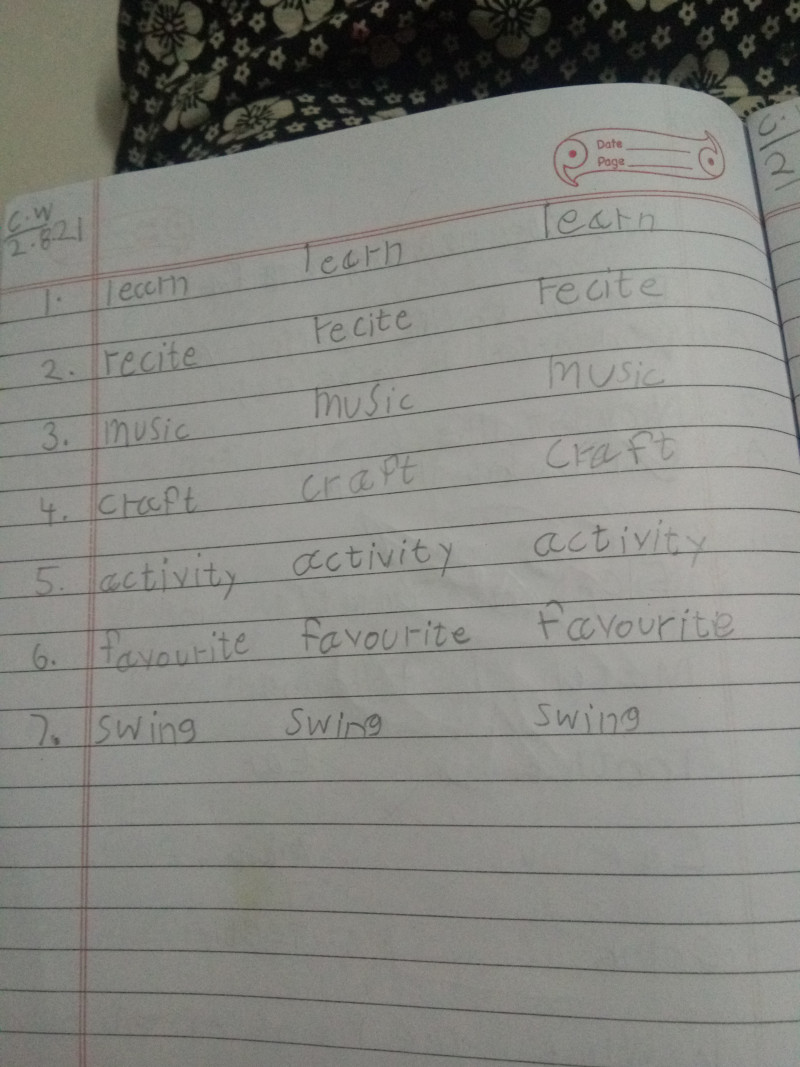 Date
Page
C.W
2.8.21
1. learn learn learn
2. recite recite recite
3. music music music
4. craft craft craft
5. activity activity activity
6. favourite favourite favourite
7. swing swing swing